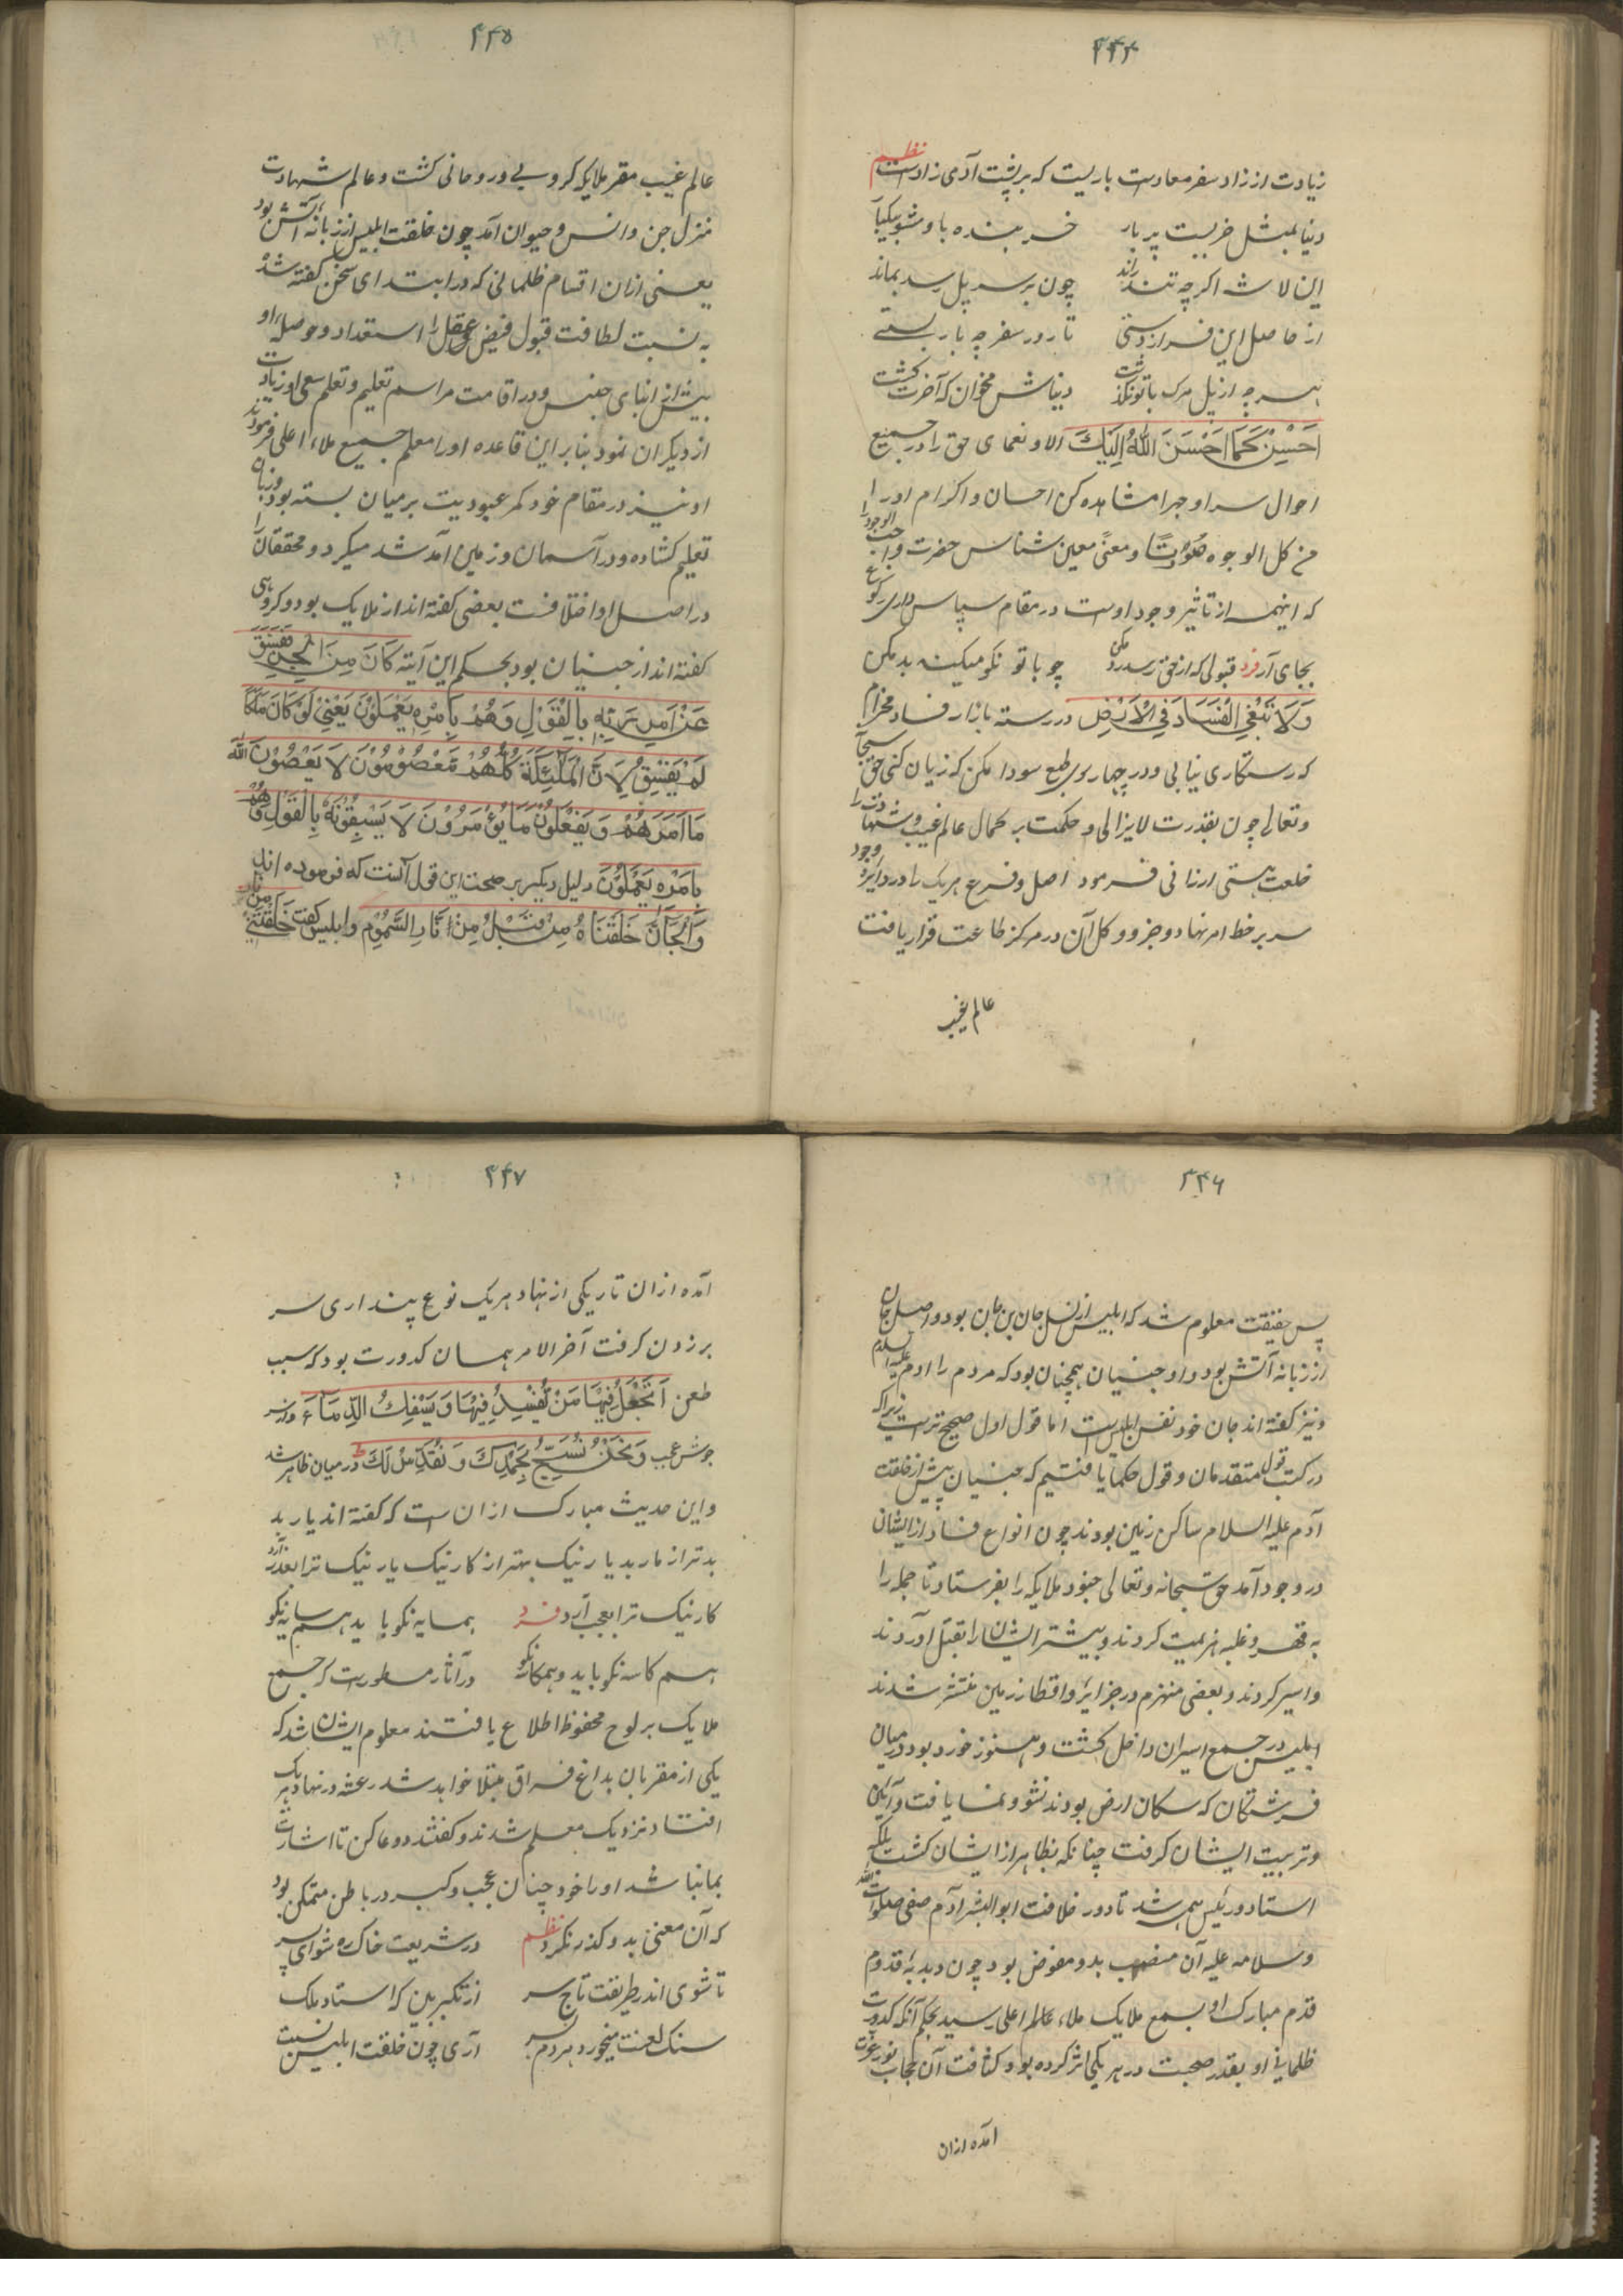 ۴۴۴
زیادت از زاد سفر معادست باریست که بر پشت آدمی زادست نظم
دنیا بمثل خریست پر بار خربنده با و مشو بیکبار
این لاشه اکرچه تند راند چون بر سر پل رسد بماند
از حاصل این فراز و پستی تا در سفر چه بار بستی
هر چه از پل مرک با تو نکذشت دنیاش مخوان که آخرت کشت
اَحْسِنْ كَمَا اَحْسَنَ اللّٰهُ اِلَيْكَ الا و نعمای حق را در جمیع
احوال سرا و جهرا مشاهده کن احسان و اکرام او را
من کل الوجوه صُوْرَتًا و معنیً معین شناس حضرت واجب الوجود را
که اینهمه از تاثیر وجود اوست در مقام سپاس داری رکوع
بجای آر فرد قبولی که از حق رسد رد مکن چو با تو نکو میکند بد مکن
وَلَا تَبْغِ الْفَسَادَ فِي الْاَرْضِ در رسته بازار فساد مخرام
که رستکاری نیابی و در چهار سوی طمع سودا مکن که زیان کنی حق سبحانه
و تعالی چون بقدرت لایزالی و حکمت بر کمال عالم غیب و شهادت را
خلعت هستی ارزانی فرمود اصل و فرع هر یک را در دایره وجود
سر بر خط امر نهاد و جزو و کل آن در مرکز طاعت قرار یافت
عالم غیب
۴۴۵
عالم غیب مقر ملایکه کروبی و روحانی کشت و عالم شهادت
منزل جن و انس و حیوان آمد چون خلقت ابلیس از زبانه آتش بود
یعنی ازان اقسام ظلمانی که در ابتدای سخن کفته شد
به نسبت لطافت قبول فیض عقل را استعداد و حوصله او
بیش از ابنای جنس و در اقامت مراسم تعلیم و تعلم سعی او زیادت
از دیکران نمود بنابر این قاعده او را معلم جمیع ملاء اعلی فرمودند
او نیز در مقام خود کمر عبودیت بر میان بسته بود و زبان
تعلیم کشاده و در آسمان و زمین آمد شد میکرد و محققان را
در اصل او اختلافست بعضی کفته اند از ملایک بود و کروهی
کفته اند از جنیان بود بحکم این آیته كَانَ مِنَ الْجِنِّ فَفَسَقَ
عَنْ اَمْرِ رَبِّهِ بِالْقَوْلِ وَهُمْ بِاَمْرِهِ يَعْمَلُوْنَ يَعْنِيْ لَوْ كَانَ مَلَكًا
لَمْ يَفْسِقْ لِاَنَّ الْمَلٰئِكَةَ كُلُّهُمْ مَعْصُوْمُوْنَ لَا يَعْصُوْنَ اللّٰهَ
مَا اَمَرَهُمْ وَيَفْعَلُوْنَ مَا يُؤْمَرُوْنَ لَا يَسْبِقُوْنَهٗ بِالْقَوْلِ وَهُمْ
بِاَمْرِهِ يَعْمَلُوْنَ دلیل دیکر بر صحت این قول آنست که فرموده اند
وَالْجَانَّ خَلَقْنَاهُ مِنْ قَبْلُ مِنْ نَّارِ السَّمُوْمِ و ابلیس کفت خَلَقْتَنِيْ مِنْ نَّارٍ
۴۴۶
پس حقیقت معلوم شد که ابلیس از نسل جان بن جان بود و اصل جان
از زبانه آتش بود و او جنیان همچنان بود که مردم را ادم علیه السلام
و نیز کفته اند جان خود نفس ابلیس است اما قول اول صحیح تر است زیرا که
در کتب قول متقدمان و قول حکما یافتیم که جنیان پیش از خلقت
آدم علیه السلام ساکن زمین بودند چون انواع فساد از ایشان
در وجود آمد حق سبحانه و تعالی جنود ملایکه را بفرستاد تا جمله را
به قهر و غلبه هزیمت کردند و بیشتر ایشان را بقتل آوردند
و اسیر کردند و بعضی منهزم در جزایر و اقطار زمین منتشر شدند
ابلیس در جمع اسیران داخل کشت و هنوز خورد بود در میان
فرشتکان که سکان ارض بودند نشو و نما یافت و آیین
و تربیت ایشان کرفت چنانکه بظاهر از ایشان کشت بلکه
استاد و رئیس همه شد تا دور خلافت ابو البشر آدم صفی صلوات الله
و سلامه علیه آن منصب بدو مفوض بود چون دبدبه قدوم
قدم مبارک او بسمع ملایک ملاء عالم اعلی رسید بحکم آنکه کدورت
ظلمانی او بقدر صحبت در هر یکی اثر کرده بود و کثافت آن حجاب نور عزت
آمده ازان
۴۴۷
آمده ازان تاریکی از نهاد هر یک نوع پنداری سر
بر زدن کرفت آخر الامر همان کدورت بود که سبب
طعن اَتَجْعَلُ فِيْهَا مَنْ يُّفْسِدُ فِيْهَا وَيَسْفِكُ الدِّمَاءَ و از سر
جوش عجب وَنَحْنُ نُسَبِّحُ بِحَمْدِكَ وَنُقَدِّسُ لَكَ در میان ظاهر شد
و این حدیث مبارک ازان است که کفته اند یار بد
بدتر از مار بد یار نیک بهتر از کار نیک یار نیک ترا بعذر آرد
کار نیک ترا بعجب آرد فرد همسایه نکو باید همسایه نکو
هم کاسه نکو باید و همکاره نکو در آثار مسطورست که جمع
ملایک بر لوح محفوظ اطلاع یافتند معلوم ایشان شد که
یکی از مقربان بداغ فراق مبتلا خواهد شد رعشه در نهاد هر یک
افتاد نزدیک معلم شدند و کفتند دو عا کن تا اشارت
بمانباشد او را خود چنان عجب و کبر در باطن متمکن بود
که آن معنی بدو کذر نکرد نظم در شریعت خاک ره شو ای پسر
تا شوی اندر طریقت تاج سر از تکبر بین که استاد ملک
سنک لعنت میخورد هر دم بسر آری چون خلقت ابلیس نسبت